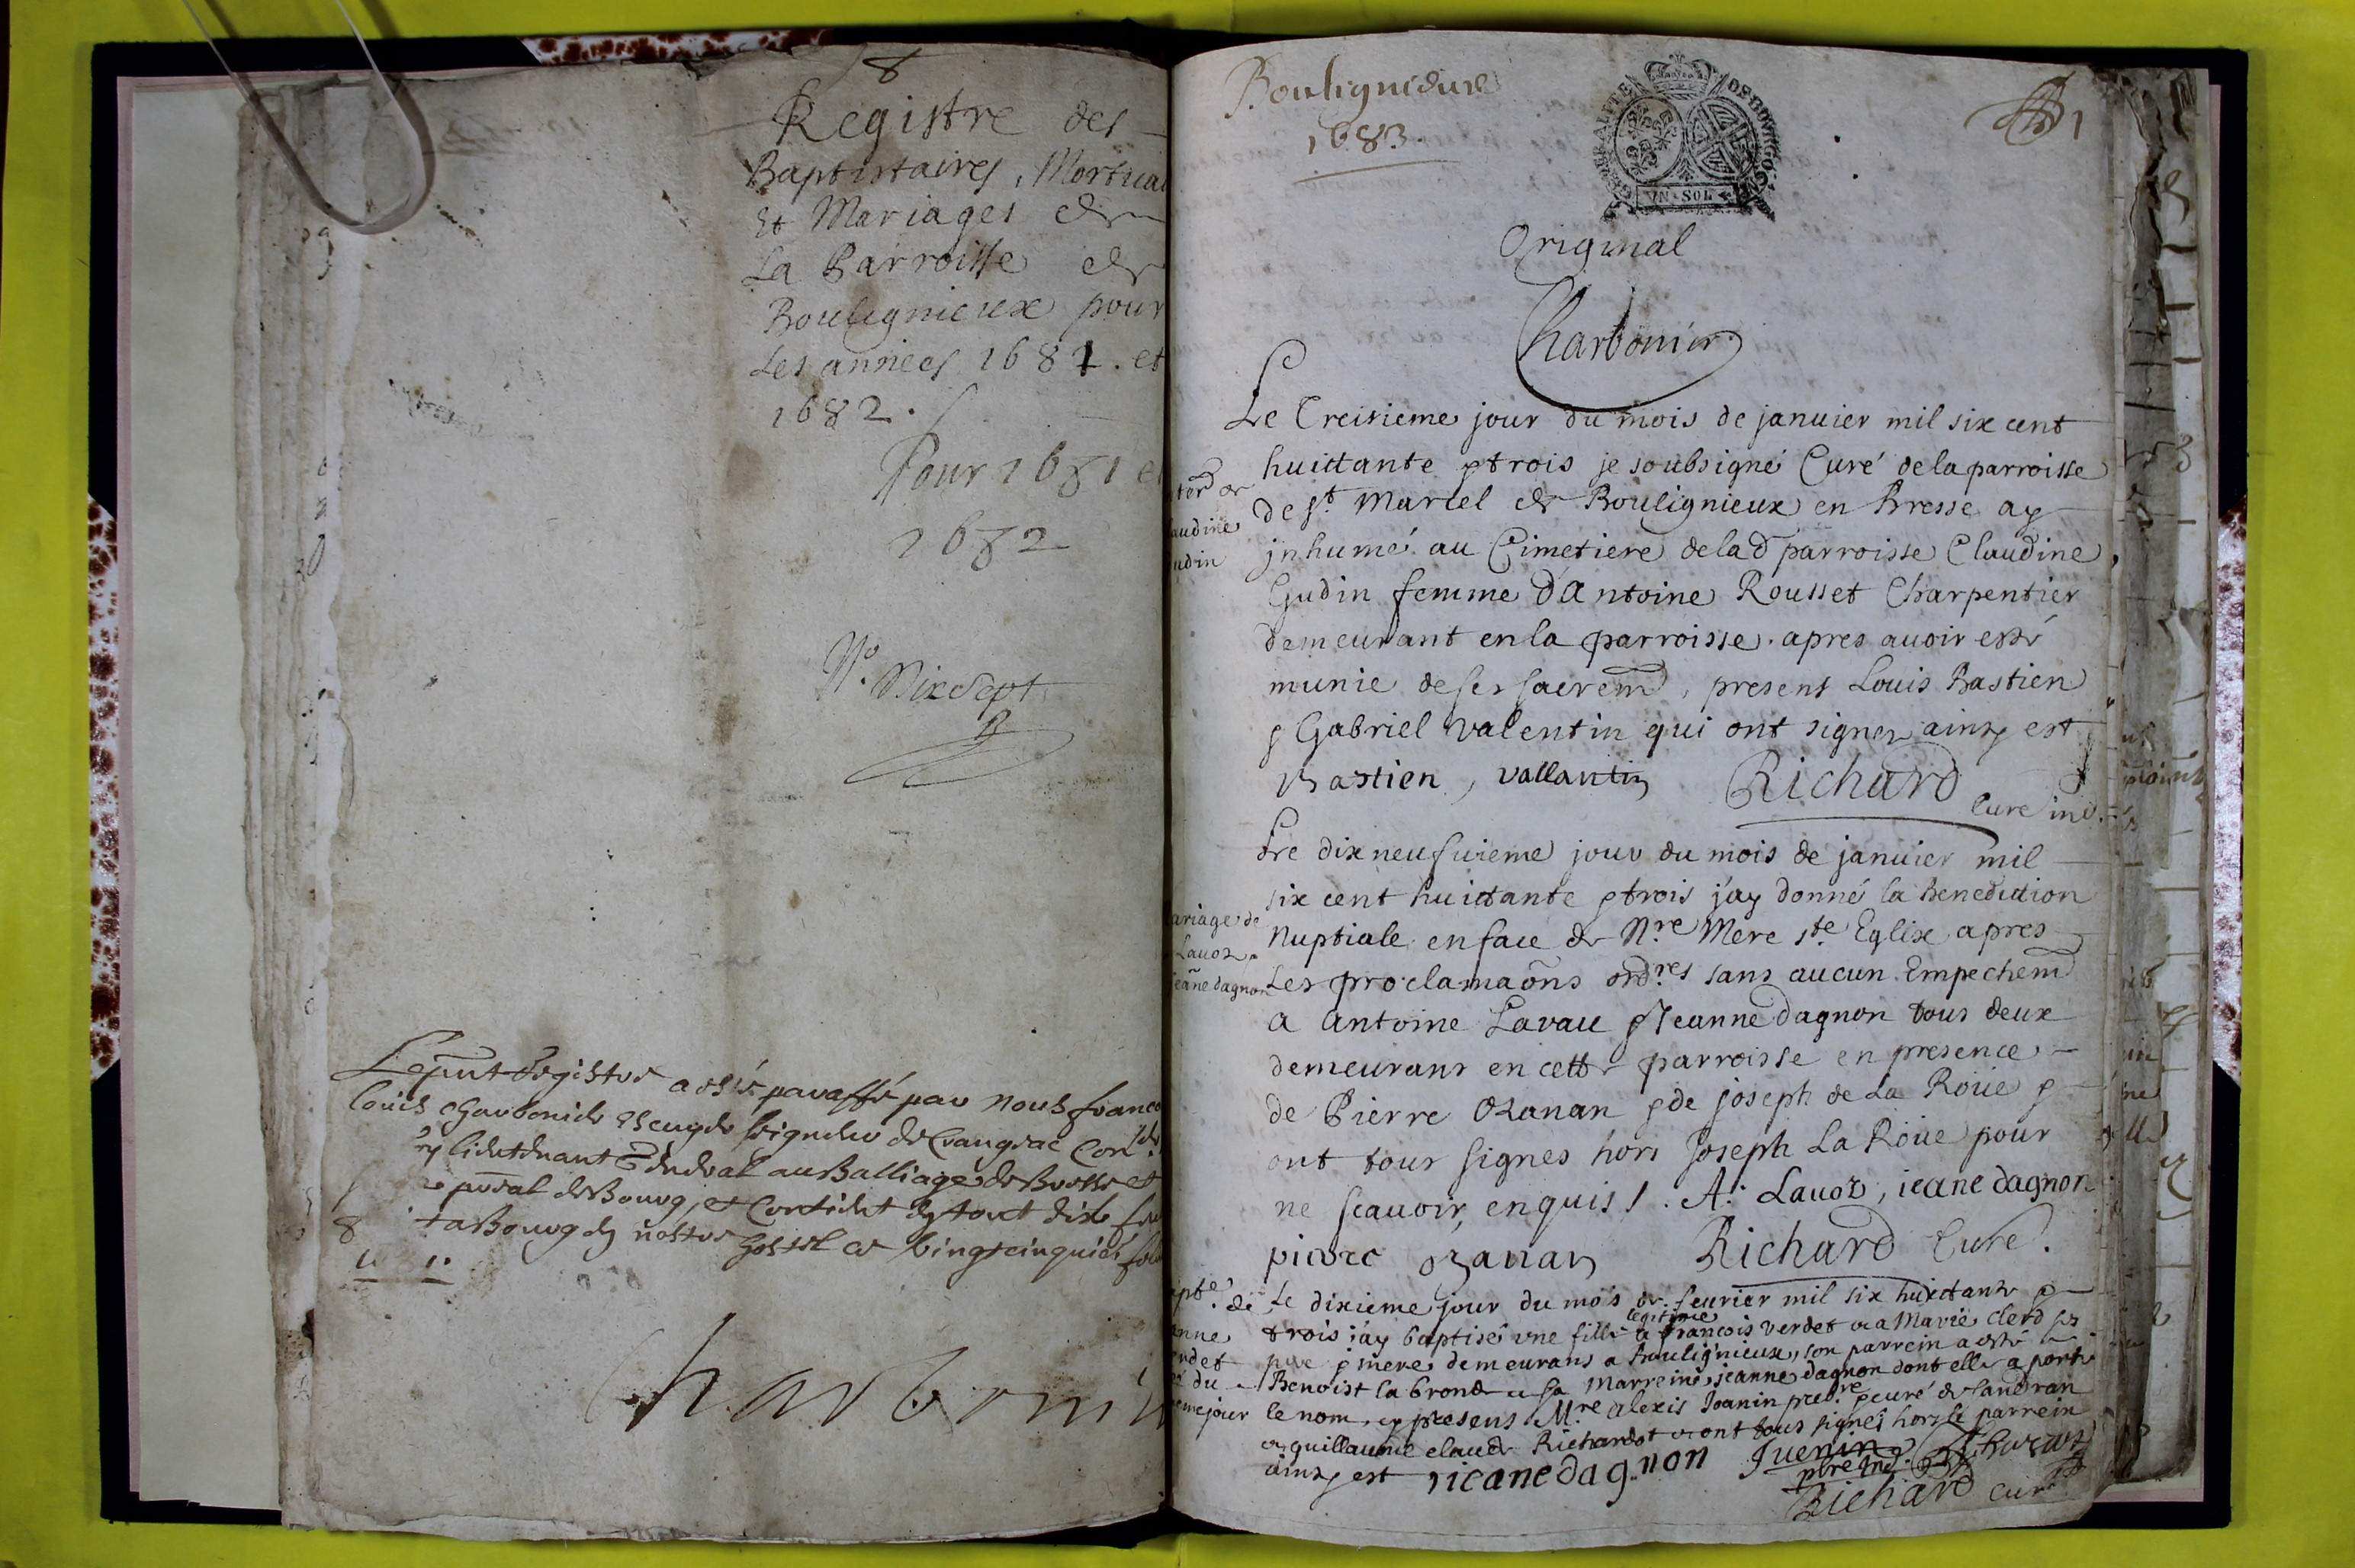 8
Registre des
Baptistaires, Mortuai
Et Mariages de
La Parroisse de
Boulignieux pour
Les annees 1681. et
1682.
Pour 1681 et
1682
No. Dix sept
Le pnt Registre a esté paraffé par nous franco
Louis Charbonier Escuyer seigneur de Crangeac Con.er
lieutenant General au Balliage de Bresse et
de Bourg, et Contient
a Bourg en nostre hostel ce vingtcinquie
8
Charboni
Boulignieux
1683
GENERALITE DE BOVRGOGNE
VN SOL
1
Original
Charbonier
Le Treisieme jour du mois de januier mil six cent
huittante & trois je soubsigné Curé de la parroisse
de st. Marcel de Boulignieux en Bresse ay
audine
jnhumé au Cimetiere de lad parroisse Claudine
udin
Gudin femme d'Antoine Rousset Charpentier
demeurant en la parroisse. apres auoir esté
munie de ses sacrem, presens Louis Bastien
& Gabriel valentin qui ont signez ainsy est
Bastien, vallantin Richard
Curé ind.
Le dixneufuieme jour du mois de januier mil
six cent huittante & trois j'ay donné la Benediction
ariage de
Nuptiale en face de Nre Mere ste Eglise apres
Lauoz &
jeãne dagnon
Les proclamaõns ord.res sans aucun Empechem
a Antoine Lavau & Jeanne dagnon tous deux
demeurans en cette parroisse en presence
de Pierre Ozanan & de joseph de La Roüe &
ont tous signes hors Joseph La Roüe pour
ne scauoir, enquis /. A. Lauoz, ieane dagnon
pierre ozanan Richard Curé.
Le dixieme jour du mois de feurier mil six huittante &
legitime
trois j'ay baptisé vne fille a francois verdet & a Marie Clerd ses
pere & mere demeurans a Boulignieux, son parrein a esté
Benoist la brond & sa Marreine jeanne dagnon dont elle a porté
le nom, & presens M.re alexis Joanin prebre & curé de sandran
& guillaume claude Richardot & ont tous signés hors le parrein
ainsy est ieane dagnon Juenin
pbre Ind.
Richard curé